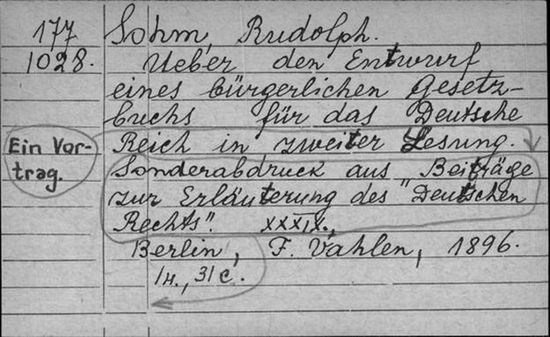 177
1028.
Sohm, Rudolph.
Ueber den Entwurf
eines bürgerlichen Gesetz-
buchs für das Deutsche
Reich in zweiter Lesung.
Ein Vor-
trag.
Sonderabdruck aus "Beiträge
zur Erläuterung des "Deutschen
Rechts". XXXIX.,
Berlin, F. Vahlen, 1896.
31 c.